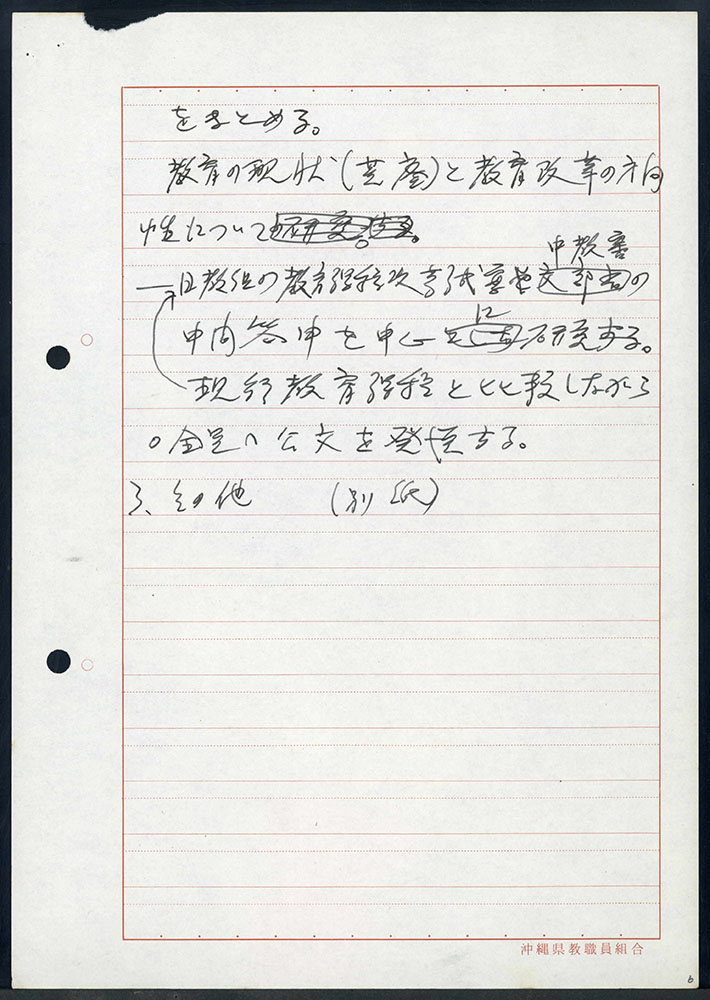 をまとめる。
教育の現状(荒廃)と教育改革の方向
性について研究。
中教審
日教組の教育課程改革試案と文部省の
に
中間答申を中心と研究する。
現行教育課程と比較しながら
○全員へ公文を発信する。
3、その他 (別紙)
沖縄県教職員組合
6